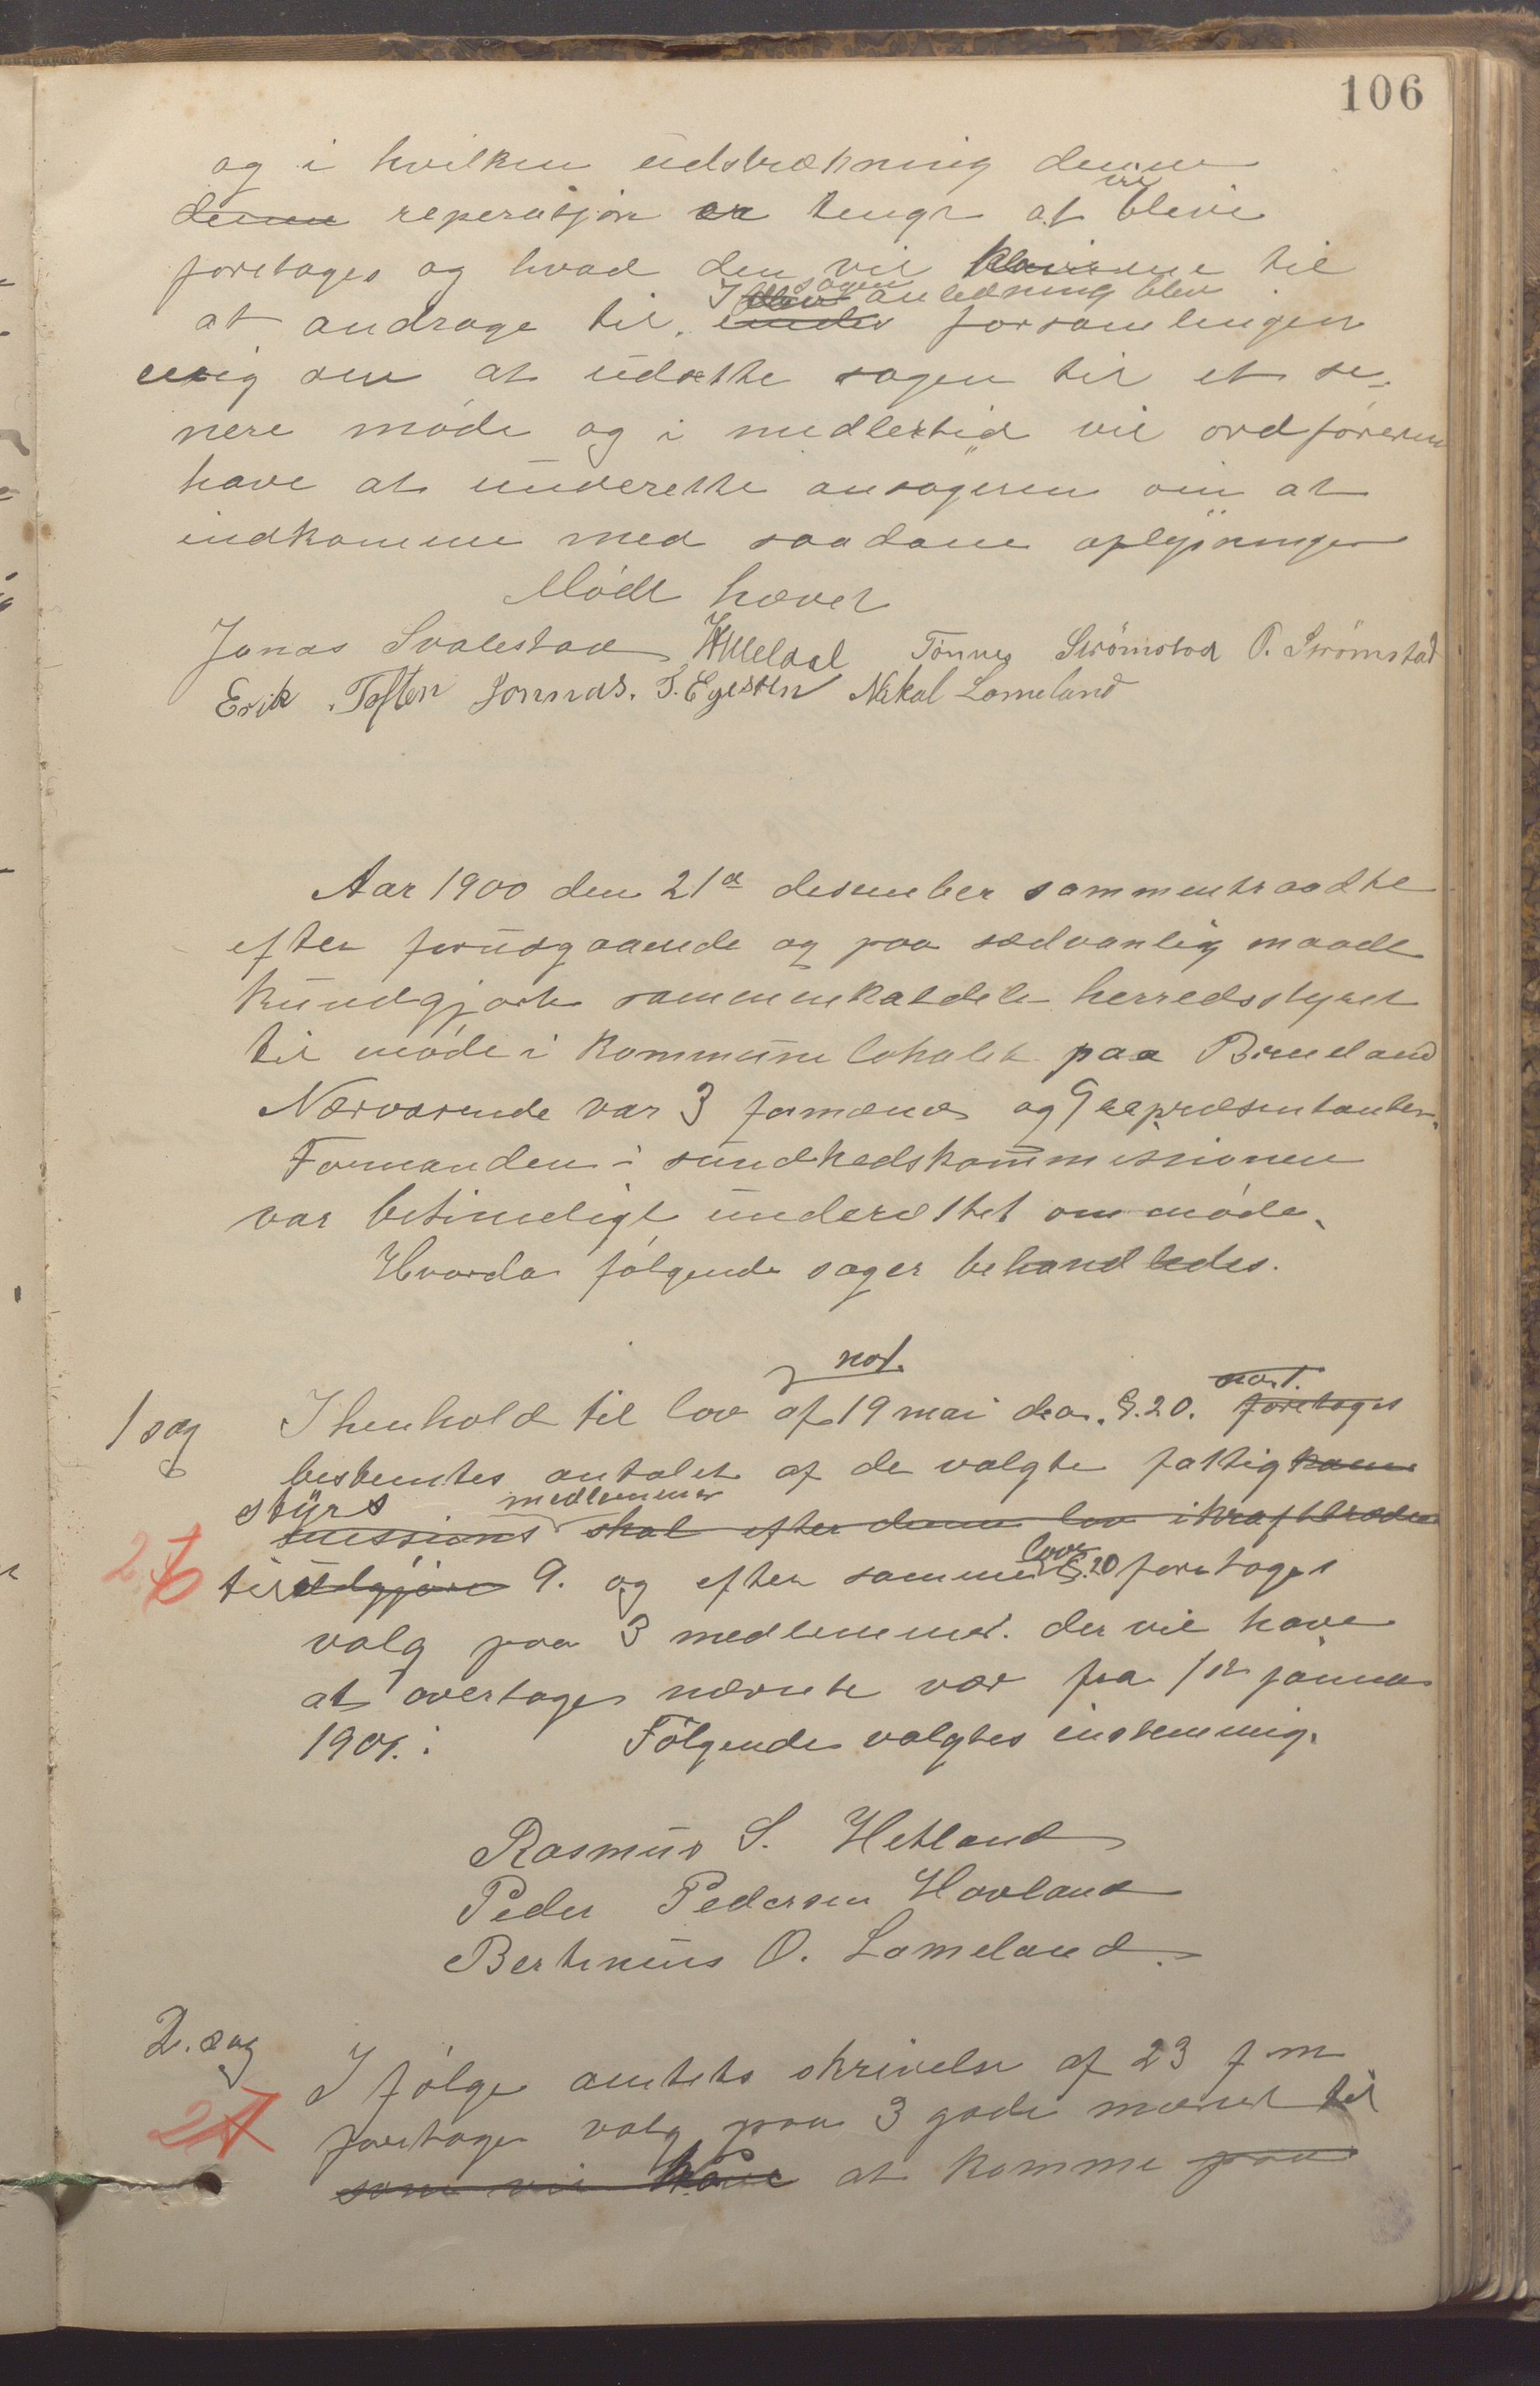 106
og i hvilken udstrækning denne
denne reperasjon er tengt at vil blive
foretages og hvad den vil komme til
at andrage til. I sagen anledning blev forsamlingen
enig om at udsætte sagen til et se-
nere møde og i medlertid vil ordføreren
have at underette ansøgeren om at
indkomme med saadane oplysninger
Møde hævet
Jonas Svalestad Tønnes Strømstad O. Strømstad
Erik Toften Jonnas. T. Egesten Nikal Lomeland
Aar 1900 den 21d desember sammentraadte
efter forudgaaende og paa sædvanlig maade
kundgjort sammenkaldele herredsstyret
til møde i kommunelokalet paa Birkeland
Nærværende var 3 formænd og 9 repræsentanter.
Formanden i sundhedskommissionen
var betimeligt underættet om møde.
Hvorda følgende sager behandledes.
not.
1 sag I henhold til lov af 19 mai d.a. §.20. foretages
bestemtes antalet af de valgte fattigkom
styrs medlemmer
missions skal efter denne lov ikrafttræden
26 til udgjøre 9. og efter samme lovs §.20 foretages
valg paa 3 medlemmer. der vil have
at overtage nævnte vær fra 1ste januar
1901.: Følgende valgtes enstemmig.
Rasmus S. Hetland
Peder Pedersen Hovland
Bertinius O. Lomeland
2. sag I følge amtets skrivelse af 23 f m
27 foretages valg paa 3 gode mænd til
som vil have at komme paa